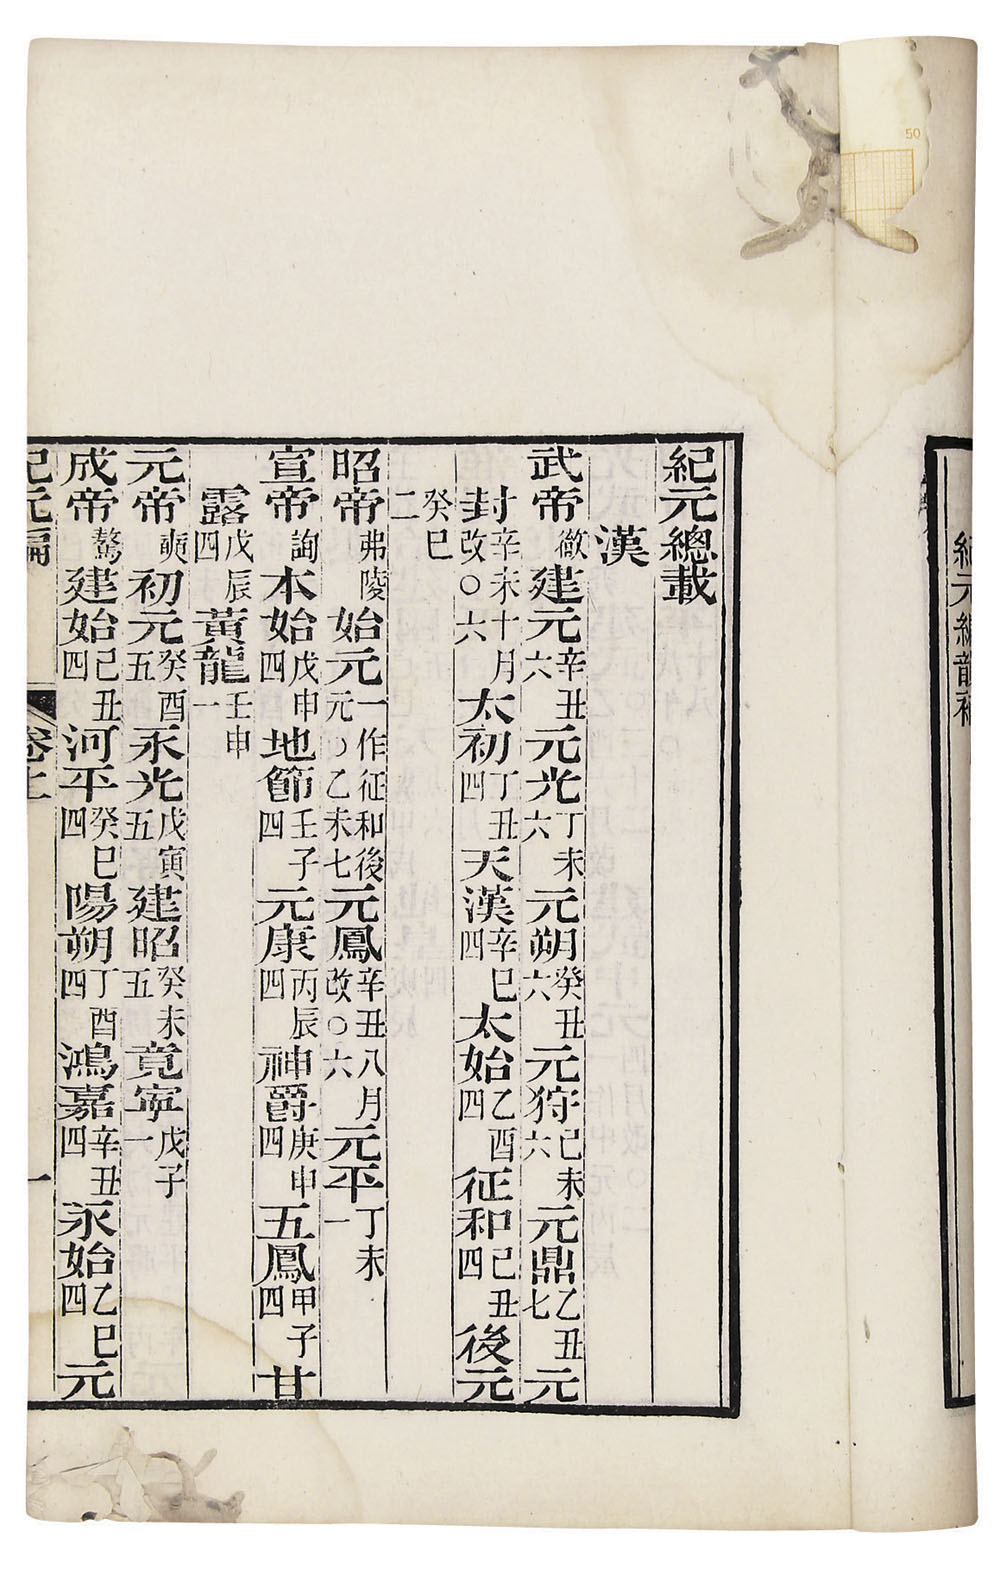 紀元總載
漢
武帝徹建元辛丑六元光丁未六元朔癸丑六元狩己未六元鼎乙丑七元
封辛未十月改○六太初丁丑四天漢辛巳四太始乙酉四征和己丑四後元
癸巳二
昭帝弗陵始元一作征和後元○乙未七元鳳辛丑八月改○六元平丁未一
宣帝詢本始戊申四地節壬子四元康丙辰四神爵庚申四五鳳甲子四甘
露戊辰四黃龍壬申一
元帝奭初元癸酉五永光戊寅五建昭癸未五竟寧戊子一
成帝驁建始己丑四河平癸巳四陽朔丁酉四鴻嘉辛丑四永始乙巳四元
紀元編 卷上 一
紀元編韻補
50